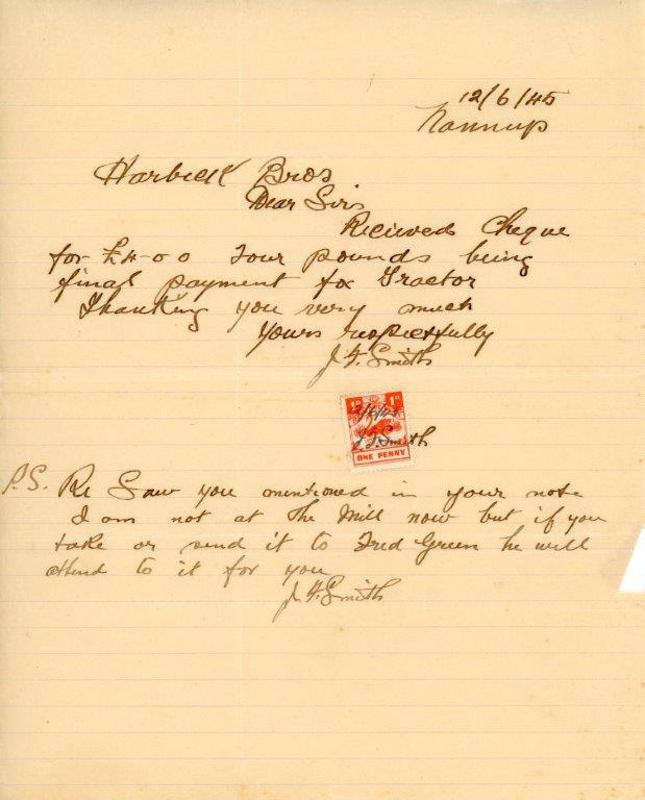 12/6/45
Nannup
Harbeck Bros
Dear Sirs
Recieved Cheque
for £4-0 0 Four pounds being
final payment for Tractor
Thanking you very much
Yours respectfully
J. F. Smith
1D 1D
12/6/45
J. F. Smith
ONE PENNY
P.S. Re Saw you mentioned in your note
I am not at the Mill now but if you
take or send it to Fred Green he will
attend to it for you
J. F. Smith